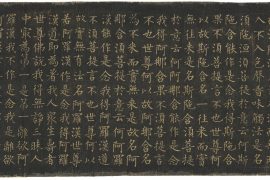 入不入色聲香味觸法是名
陀含能作是念我得斯陀含
以故斯陀含名一往來而實
無往來是名斯陀含須菩提
於意云何阿那含能作是念
我得阿那含果不須菩提言
不也世尊何以故阿那含名
為不來而實無來是故名阿
那含須菩提於意云何阿羅
漢能作是念我得阿羅漢道
不須菩提言不也世尊何以
故實無有法名阿羅漢世尊
若阿羅漢作是念我得阿羅
漢道即為著我人眾生壽者
世尊佛說我得無諍三昧人
中最為第一是第一離欲
阿羅漢我不作是念我是離欲